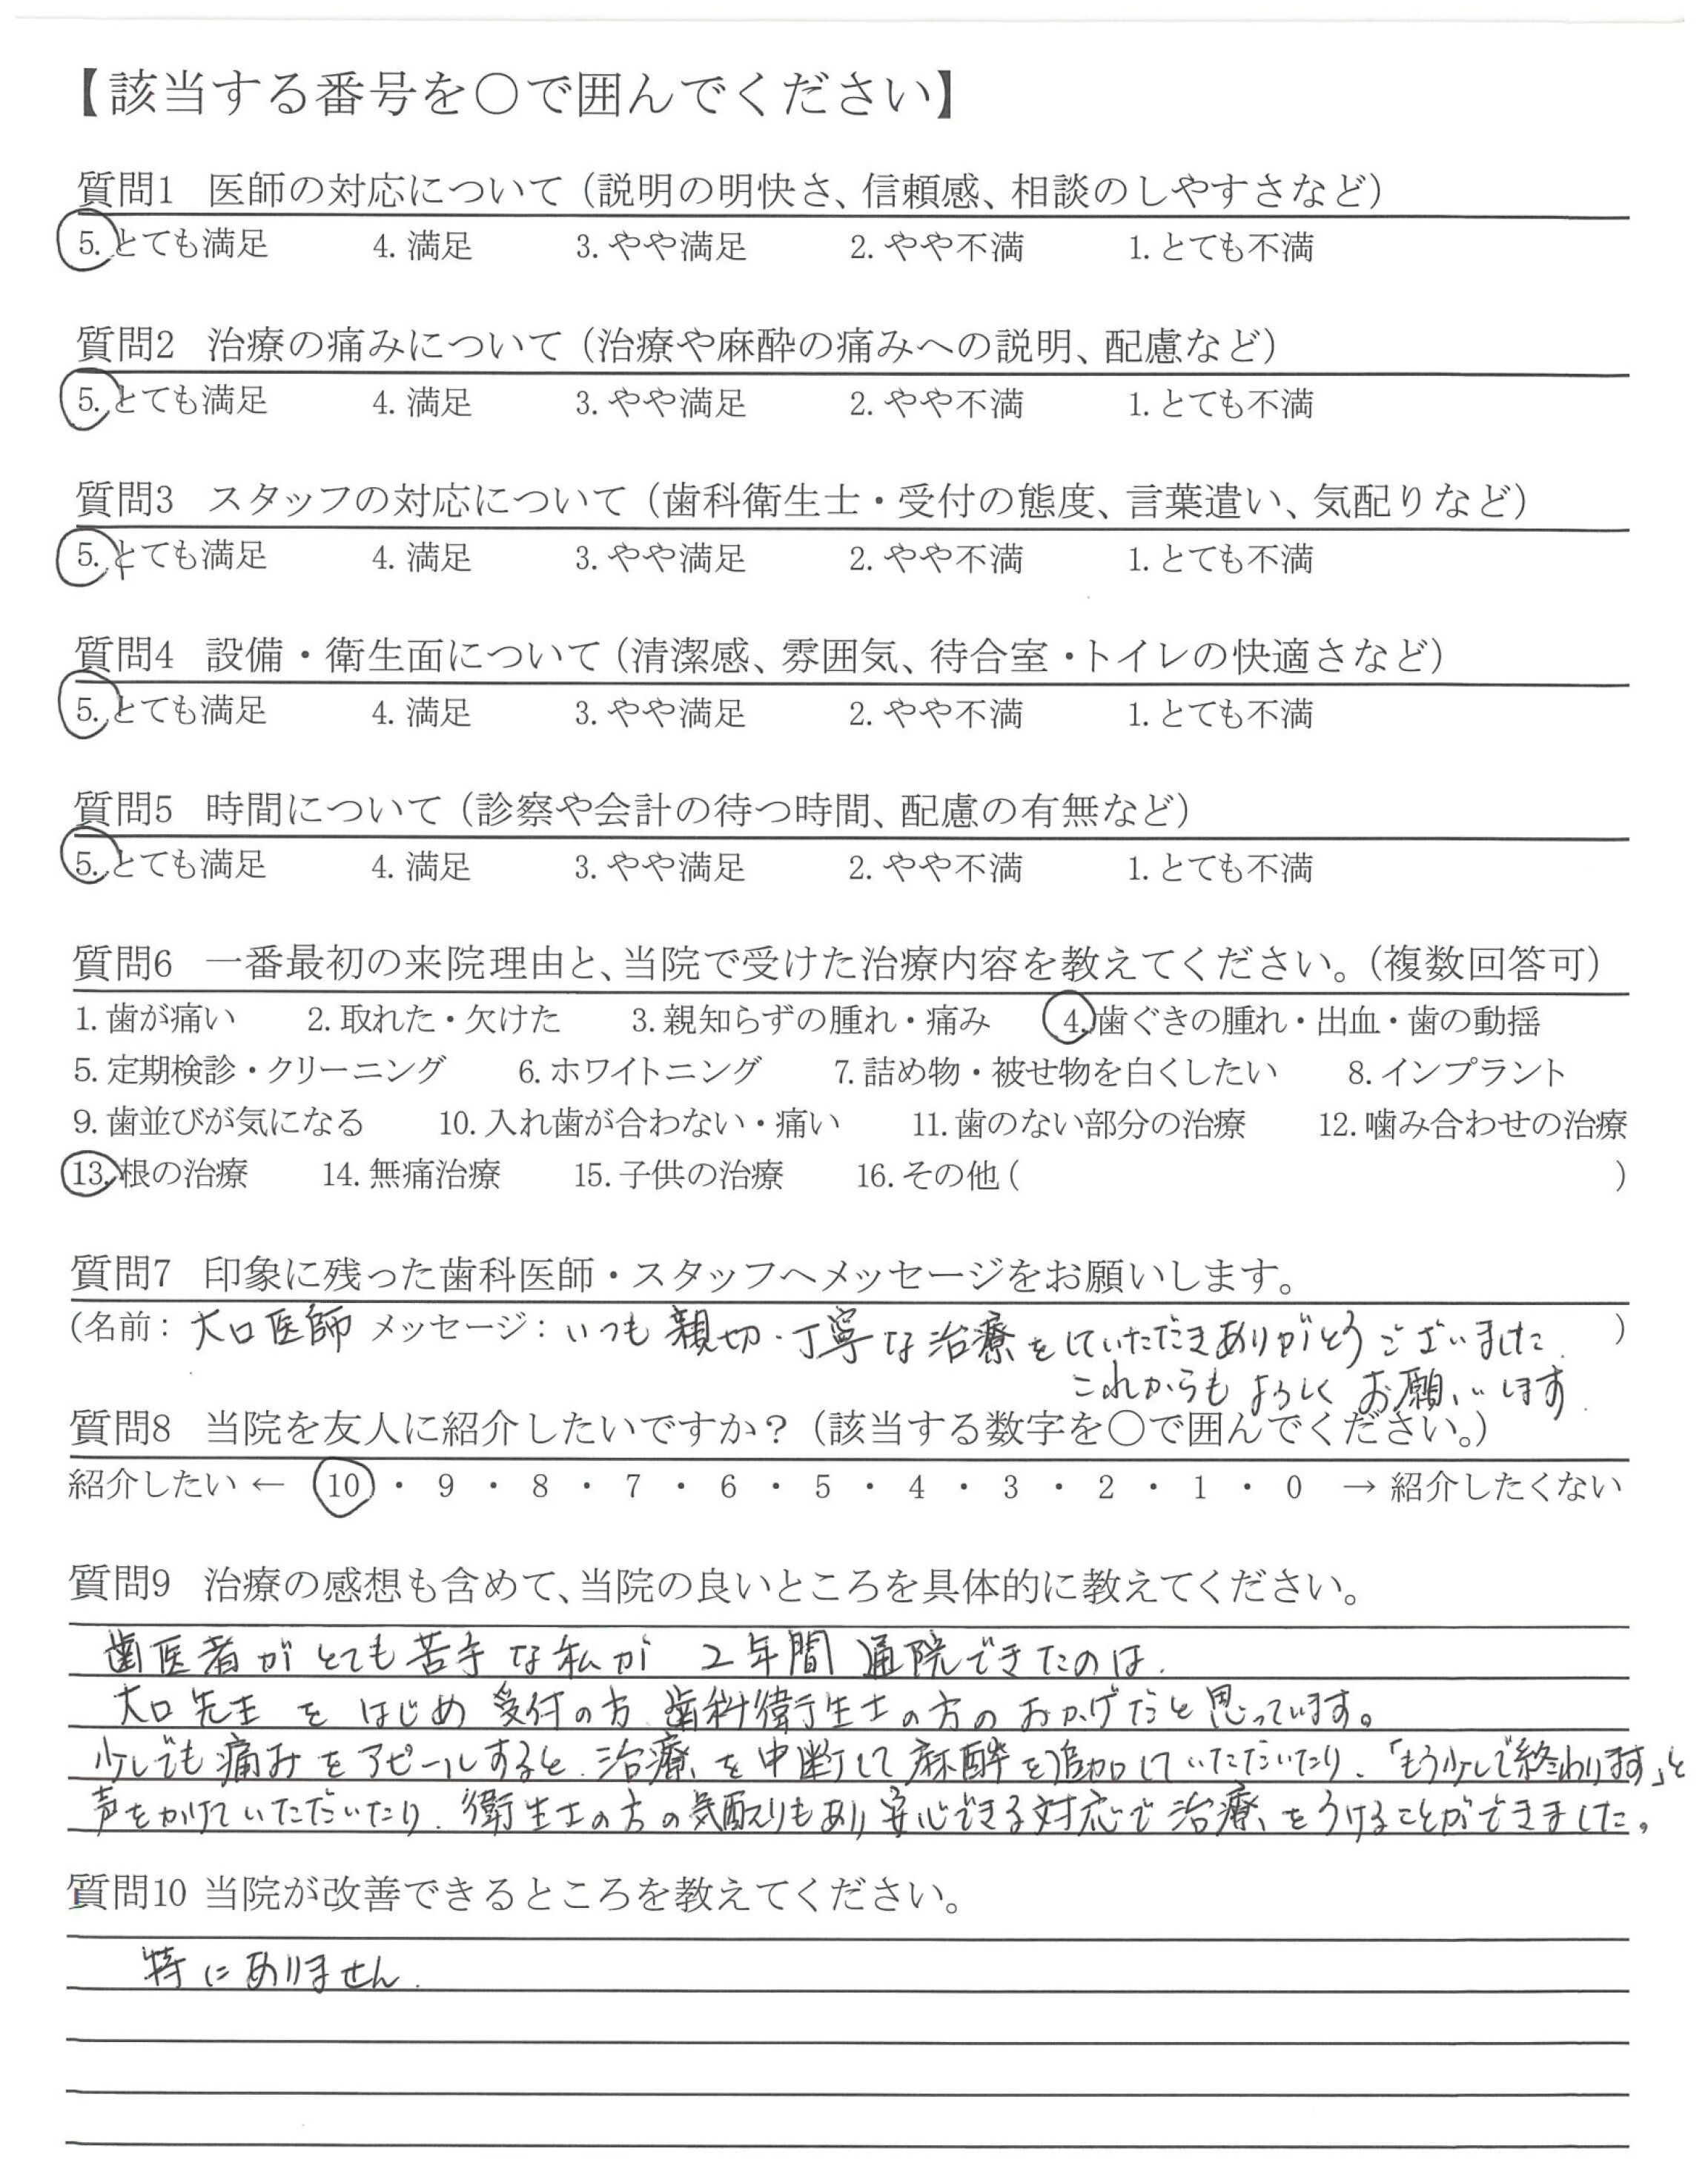 【該当する番号を○で囲んでください】
質問1 医師の対応について（説明の明快さ、信頼感、相談のしやすさなど）
5.とても満足 4.満足 3.やや満足 2.やや不満 1.とても不満
質問2 治療の痛みについて（治療や麻酔の痛みへの説明、配慮など）
5.とても満足 4.満足 3.やや満足 2.やや不満 1.とても不満
質問3 スタッフの対応について（歯科衛生士・受付の態度、言葉遣い、気配りなど）
5.とても満足 4.満足 3.やや満足 2.やや不満 1.とても不満
質問4 設備・衛生面について（清潔感、雰囲気、待合室・トイレの快適さなど）
5.とても満足 4.満足 3.やや満足 2.やや不満 1.とても不満
質問5 時間について（診察や会計の待つ時間、配慮の有無など）
5.とても満足 4.満足 3.やや満足 2.やや不満 1.とても不満
質問6 一番最初の来院理由と、当院で受けた治療内容を教えてください。（複数回答可）
1.歯が痛い 2.取れた・欠けた 3.親知らずの腫れ・痛み 4.歯ぐきの腫れ・出血・歯の動揺
5.定期検診・クリーニング 6.ホワイトニング 7.詰め物・被せ物を白くしたい 8.インプラント
9.歯並びが気になる 10.入れ歯が合わない・痛い 11.歯のない部分の治療 12.噛み合わせの治療
13.根の治療 14.無痛治療 15.子供の治療 16.その他（ ）
質問7 印象に残った歯科医師・スタッフへメッセージをお願いします。
（名前：大口医師 メッセージ：いつも親切・丁寧な治療をしていただきありがとうございました． ）
これからもよろしくお願いします．
質問8 当院を友人に紹介したいですか？（該当する数字を○で囲んでください。）
紹介したい ← 10 ・ 9 ・ 8 ・ 7 ・ 6 ・ 5 ・ 4 ・ 3 ・ 2 ・ 1 ・ 0 → 紹介したくない
質問9 治療の感想も含めて、当院の良いところを具体的に教えてください。
歯医者がとても苦手な私が 2年間 通院できたのは、
大口先生をはじめ 受付の方、歯科衛生士の方のおかげだと思っています。
少しでも痛みをアピールすると、治療を中断して麻酔を追加していただいたり、「もう少しで終わります」と
声をかけていただいたり、衛生士の方の気配りもあり安心できる対応で治療をうけることができました。
質問10 当院が改善できるところを教えてください。
特にありません．